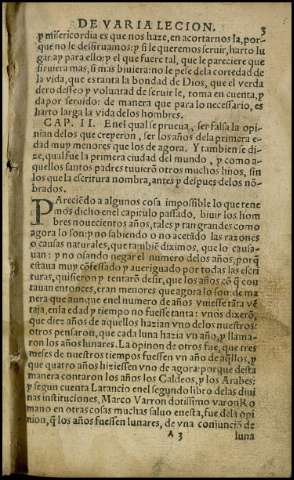 DE VARIA LECION. 3
y misericordia es que nos haze, en acortarnos la, por-
que no le dessiruamos: y si le queremos seruir, harto lu
gar ay para ello: y el que fuere tal, que le pareciere que
siruiera mas, si mas biuiera: no le pese dela cortedad de
la vida, que esta en la bondad de Dios, que el verda
dero desseo y voluntad de seruir le, toma en cuenta, y
da por seruido: de manera que para lo necessario, es
harto larga la vida de los hombres.
CAP. II. En el qual se prueua, ser falsa la opi
nion delos que creyeron, ser los años dela primera e-
dad muy menores que los de agora. Y tambien se di-
ze, qual fue la primera ciudad del mundo, y como a-
quellos santos padres tuuierõ otros muchos hijos, sin
los que la escritura nombra, antes y despues delos nõ-
brados.
PAreciẽdo a algunos cosa impossible lo que tene
mos dicho en el capitulo passado, biuir los hom
bres nouecientos años, tales y tan grandes como
agora lo son: y no sabiendo o no aceтãdo las razones
o causas naturales, que tambiẽ diximos, que lo causa-
uan: y no osando negar el numero delos años, porq̃
estaua muy cõfessado y aueriguado por todas las escri
turas, quisieron y tentarõ desir, que los años cõ q̃ con
tauan entonces, eran menores que agora lo son: de ma
nera que aunque en el numero de años vuiesse tãta vẽ
taja, en la edad y tiempo no fuesse tanta: vnos dixerõ,
que diez años de aquellos hazian vno delos nuestros:
otros pensarõn, que cada luna hazia vn año, y llama-
ron los años lunares. La opinon de otros fue, que tres
meses de nuestros tiempos fuessen vn año de aq̃llos, y
que quatro años hiziessen vno de agora: porque desta
manera contaron los años los Caldeos, y los Arabes:
y segun cuenta Latancio en el segundo libro de las diui
nas instituciones, Marco Varron dotissimo varon Ro
mano en otras cosas muchas saluo en esta, fue dela opi
nion, q̃ los años fuessen lunares, de vna conjunciõ de
A 3 luna